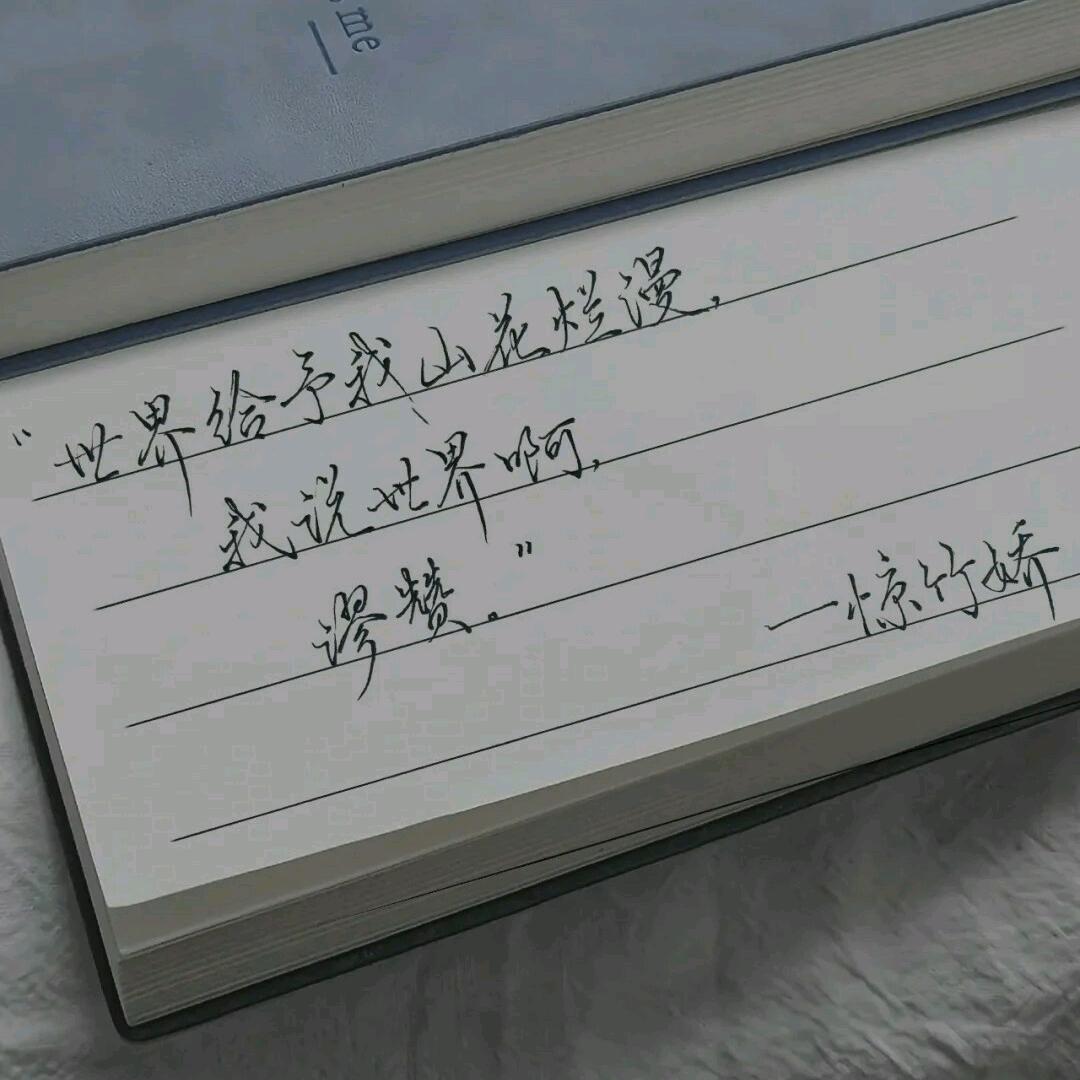 me
“世界给予我山花烂漫，
我说世界啊，
谬赞。”
一惊竹娇